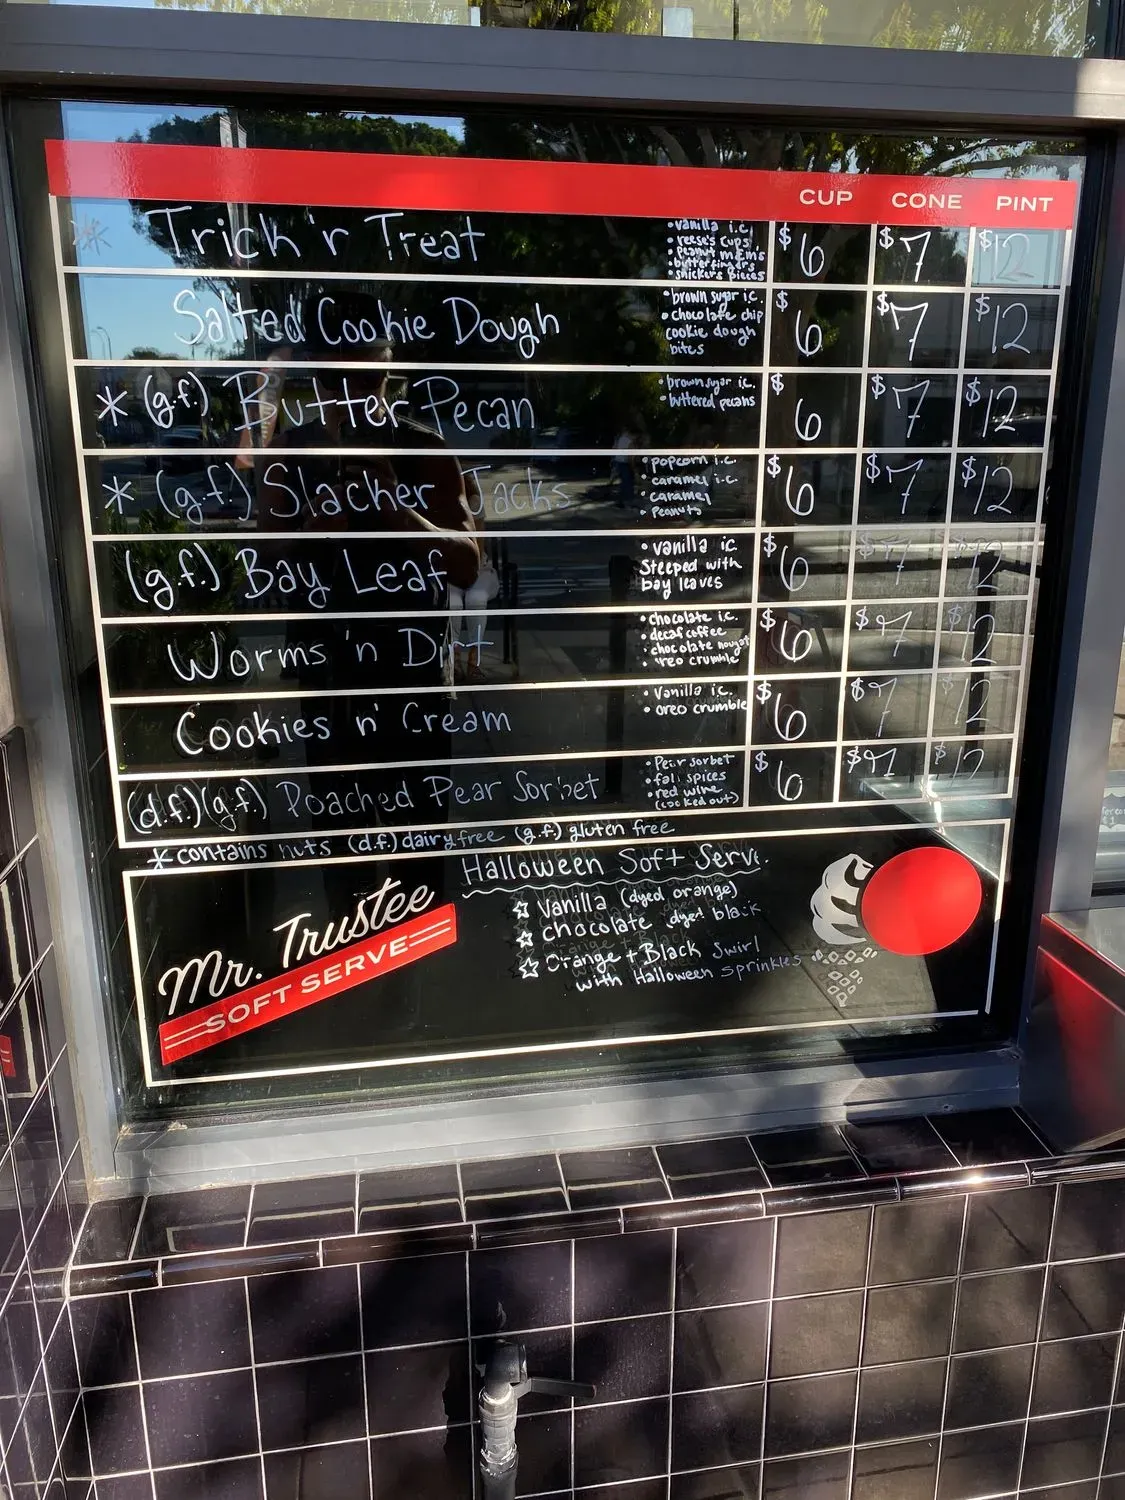 CUP CONE PINT
* Trick 'r Treat
• vanilla i.c.
• reese's cups
• peanut m&m's
• butterfingers
• snickers pieces
$6 $7 $12
Salted Cookie Dough
• brown sugar i.c.
• chocolate chip
cookie dough
bites
$6 $7 $12
* (g.f.) Butter Pecan
• brown sugar i.c.
• buttered pecans
$6 $7 $12
* (g.f.) Slacker Jacks
• popcorn i.c.
• caramel i.c.
• caramel
• Peanuts
$6 $7 $12
(g.f.) Bay Leaf
• vanilla ic
Steeped with
bay leaves
$6 $7 $12
Worms 'n Dirt
• chocolate i.c.
• decaf coffee
• chocolate nougat
• oreo crumble
$6 $7 $12
Cookies n' Cream
• Vanilla i.c.
• oreo crumble
$6 $7 $12
(d.f.)(g.f.) Poached Pear Sorbet
• Pear sorbet
• fall spices
• red wine
(cooked out)
$6 $7 $12
* contains nuts (d.f.) dairy free (g.f.) gluten free
Mr. Trustee
SOFT SERVE
Halloween Soft Serve
☆ Vanilla (dyed orange)
☆ chocolate dyed black
☆ Orange + Black Swirl
with Halloween sprinkles